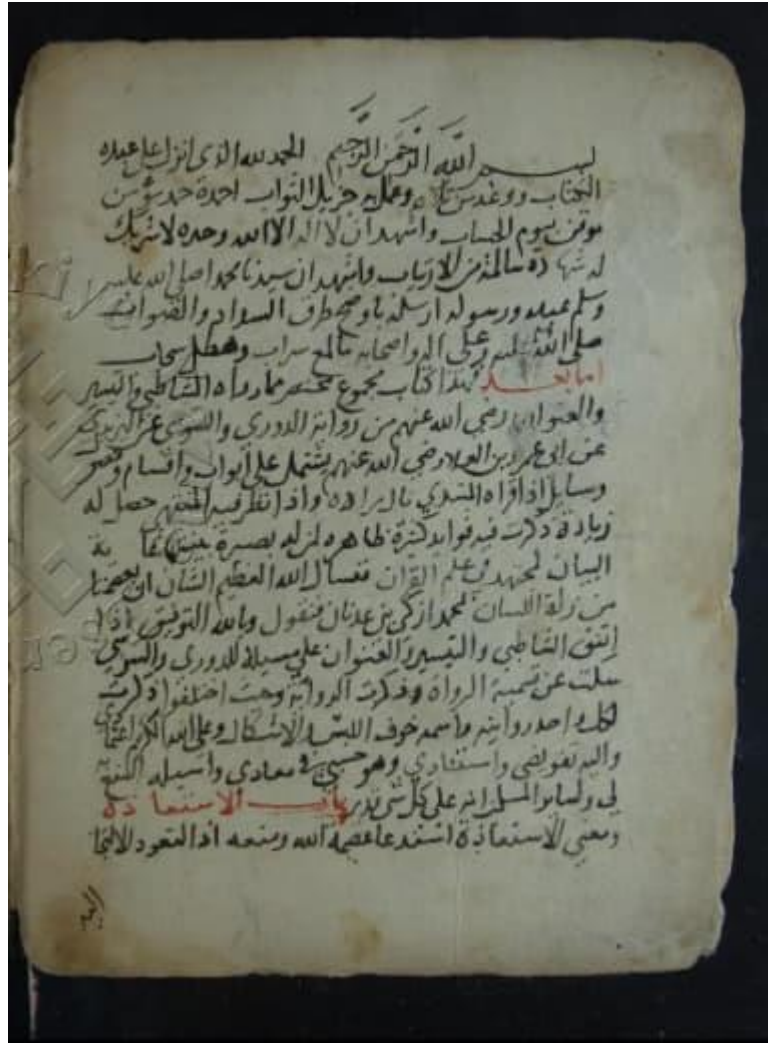 بسم الله الرحمن الرحيم الحمد لله الذي انزل على عبده
الكتاب ووعد من تلاه وعمل به جزيل الثواب احمده حمد
موقن بيوم الحساب واشهد ان لا اله الا الله وحده لا شريك
له شهادة سالمة من الارتياب واشهد ان سيدنا محمدا صلى الله عليه
وسلم عبده ورسوله ارسله باوضح طرق السداد والصواب
صلى الله عليه وعلى اله واصحابه ما لمع سراب وهطل سحاب
اما بعد فهذا كتاب مجموع مختصر مما رواه الشاطبي والتيسير
والعنوان رضي الله عنهم من رواية الدوري والسوسي عن اليزيدي
عن ابي عمرو بن العلا رضي الله عنهم يشتمل على ابواب واقسام
ومسايل اذا قراه المبتدي واذا نظر فيه المنتهي حصل له
زيادة ذكرت فيه فوايد كثيرة ظاهره لمن له بصيرة
البيان لمجتهد في علم القران فنسال الله العظيم الشان ان يعصمنا
من زلة اللسان بمحمد ازكى بن عدنان فنقول وبالله التوفيق اذا
اتفق الشاطبي والتيسير والعنوان على مسيلة للدوري والسوسي
سكت عن تسمية الرواة وذكرت الرواية وحيث اختلفوا ذكرت
لكل واحد روايته واسمه خوف اللبس والاشكال وعلى الله الكريم اعتمادي
واليه تفويضي واستنادي وهو حسبي في معادي واسيله
لي ولساير المسلمين انه على كل شي قدير باب الاستعاذة
ومعنى الاستعاذة استدعا عصمة الله ومنعه اذ التعوذ الالتجا
اليه